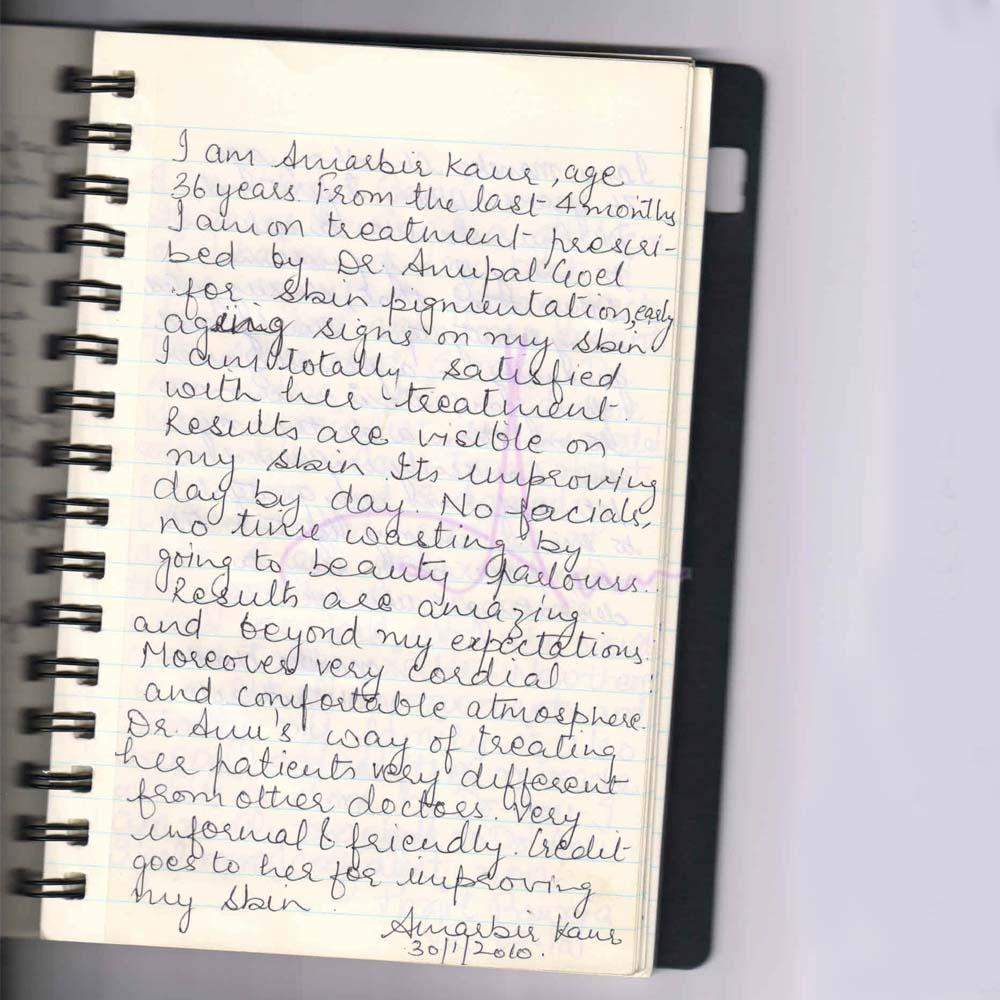 I am Amarbir Kaur, age
36 years. From the last 4 months
I am on treatment prescri-
bed by Dr. Anupal Goel
for skin pigmentation, early
ageing signs on my skin
I am totally satisfied
with her treatment.
Results are visible on
my skin Its improving
day by day. No facials,
no time wasting by
going to beauty parlours.
Results are amazing
and beyond my expectations.
Moreover very cordial
and comfortable atmosphere.
Dr. Anu's way of treating
her patients very different
from other doctors. Very
informal & friendly. Credit
goes to her for improving
my skin.
Amarbir Kaur
30/1/2010.